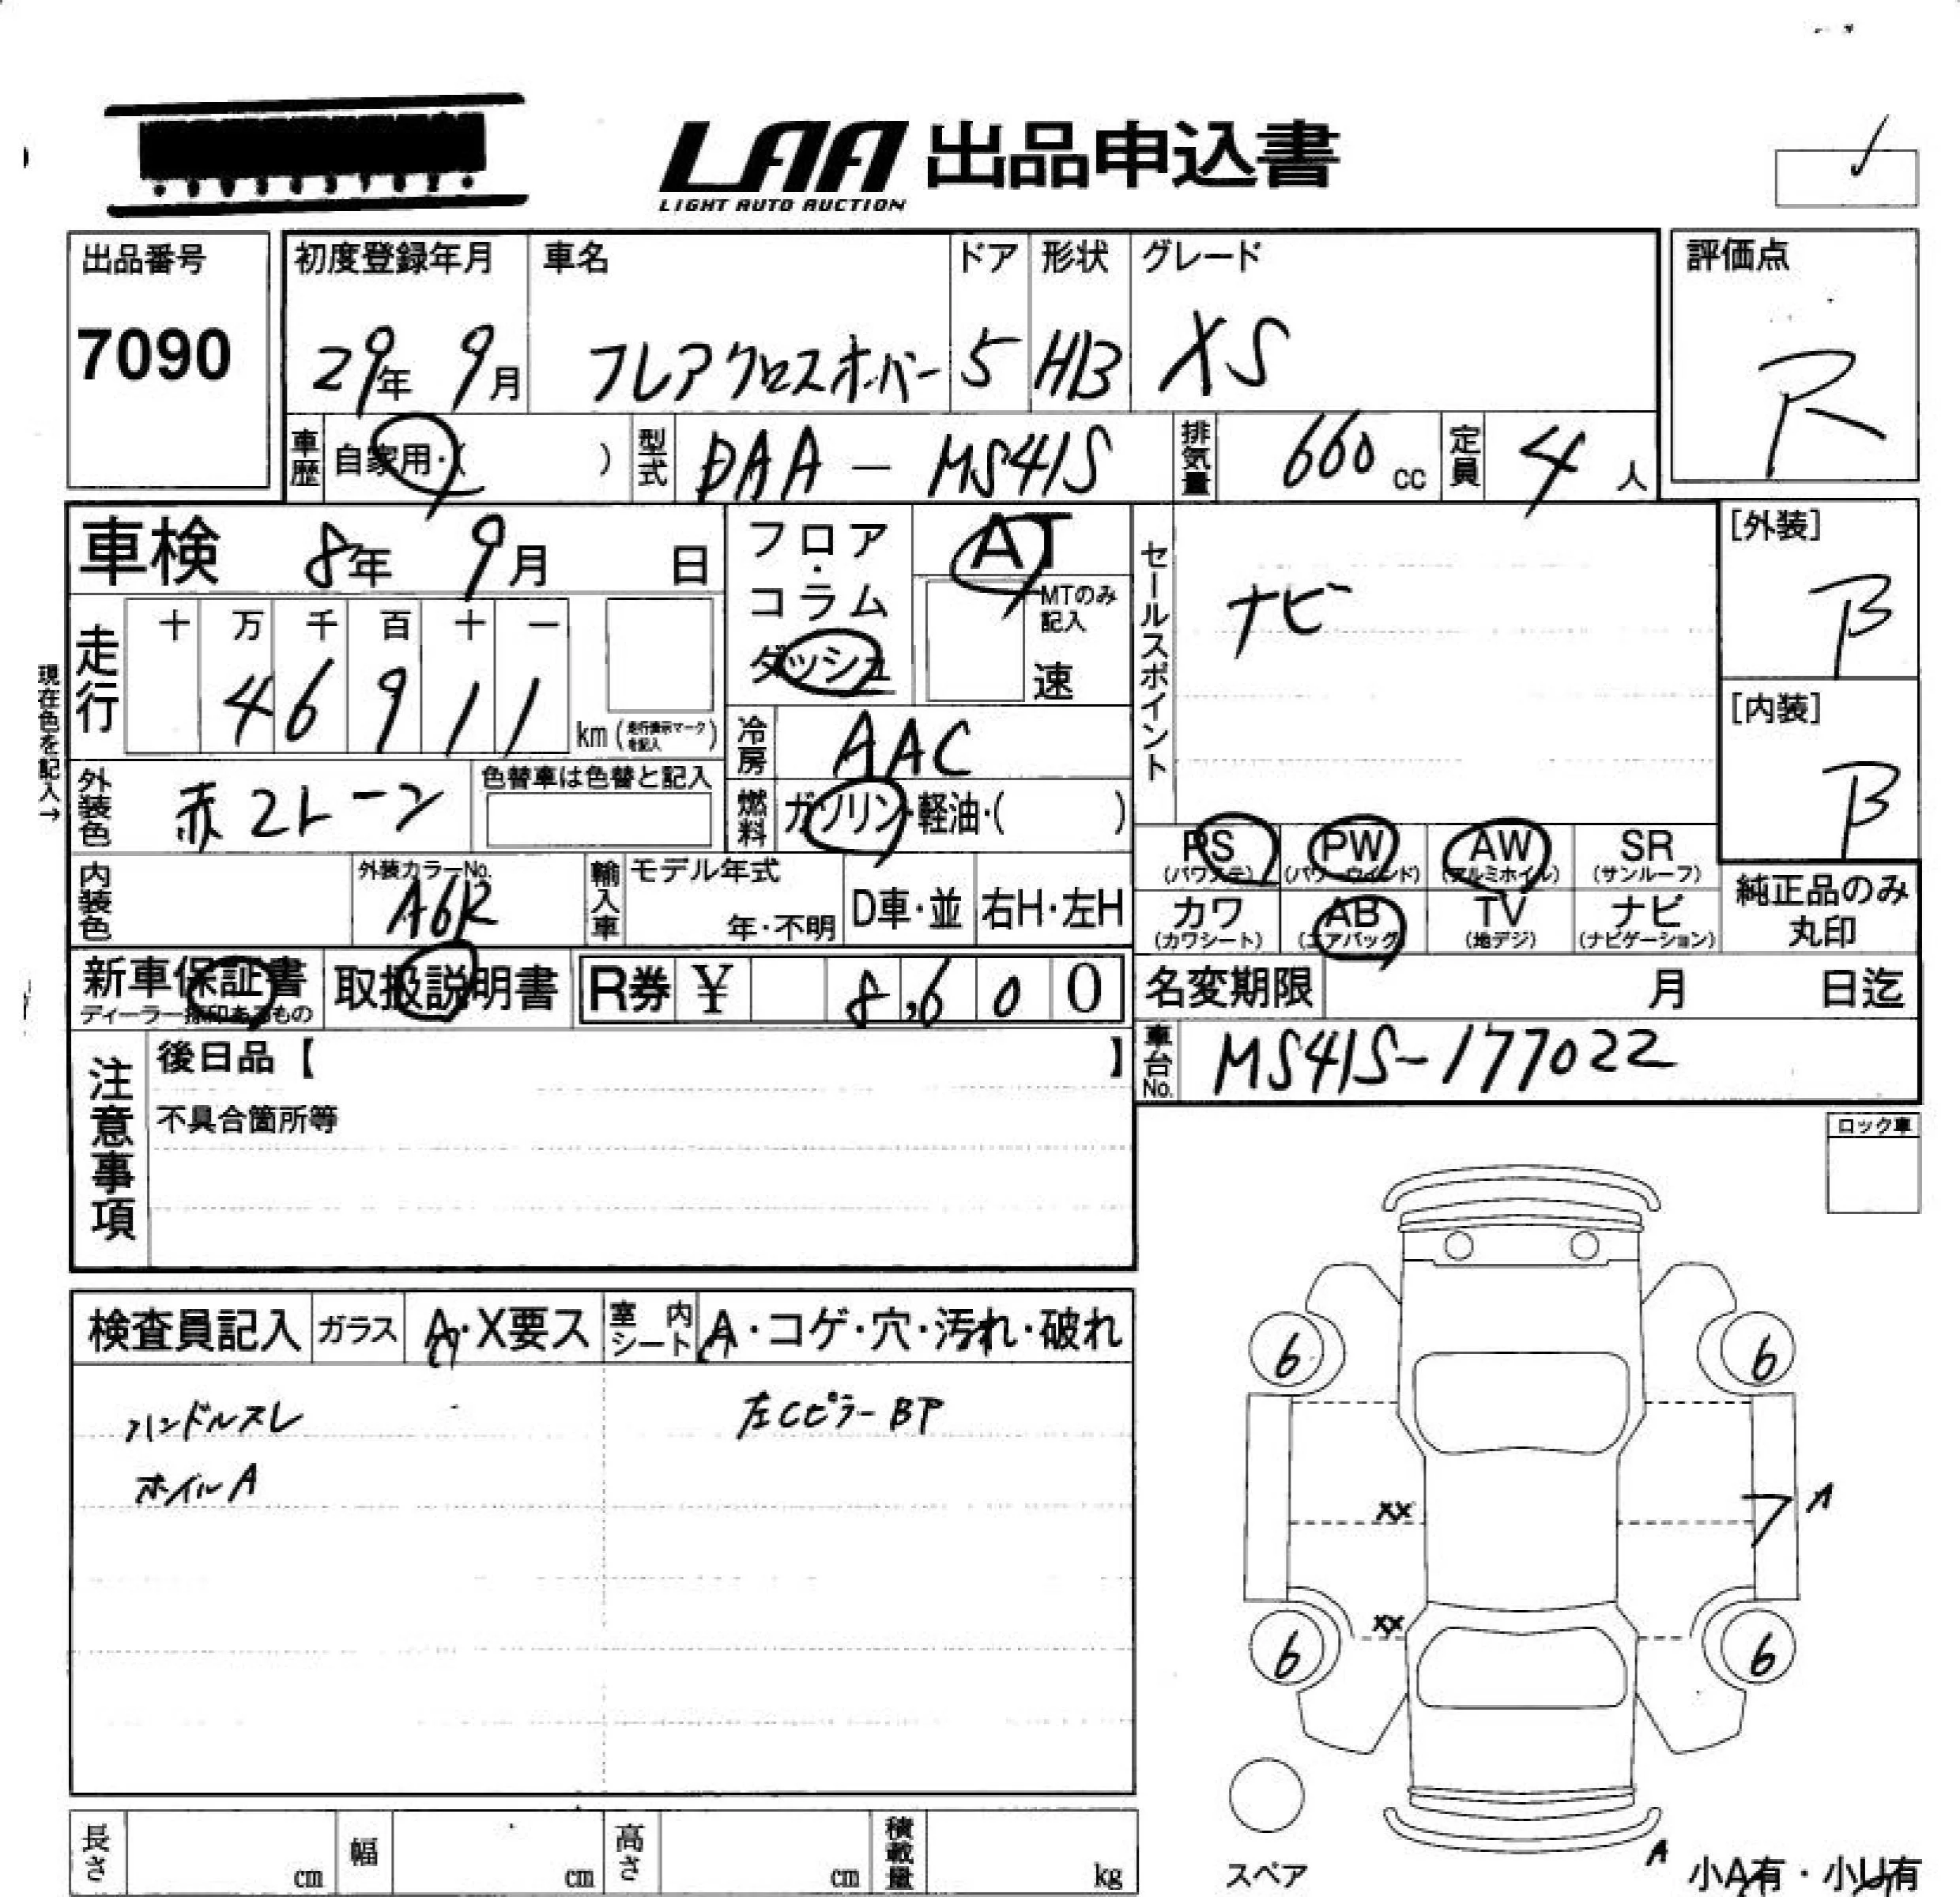 LAA 出品申込書
LIGHT AUTO AUCTION
出品番号
7090
初度登録年月
29年 9月
車名
フレアクロスオーバー
ドア
5
形状
H/B
グレード
XS
評価点
R
車歴 自家用・( )
型式 DAA-MS41S
排気量 660 cc
定員 4 人
車検 8年 9月 日
走行 十 万 千 百 十 一
4 6 9 1 1
km (走行表示マークを記入)
現在色を記入→
フロア・コラム
ダッシュ
AT
MTのみ記入
速
冷房 AAC
燃料 ガソリン・軽油・( )
セールスポイント
ナビ
[外装]
B
[内装]
B
外装色 赤2トーン
色替車は色替と記入
内装色
外装カラーNo.
A6R
輸入車 モデル年式
年・不明
D車・並
右H・左H
PS (パワステ)
PW (パワーウィンド)
AW (アルミホイル)
SR (サンルーフ)
カワ (カワシート)
AB (エアバッグ)
TV (地デジ)
ナビ (ナビゲーション)
純正品のみ
丸印
新車保証書
ディーラー捺印あるもの
取扱説明書
R券 ¥ 8,600
名変期限 月 日迄
車台No. MS41S-177022
注意事項
後日品【 】
不具合箇所等
ロック車
検査員記入
ガラス A・X要ス
室内シート A・コゲ・穴・汚れ・破れ
ハンドルスレ
左Cピラー BP
ホイル A
6 6
XX
ア A
XX
6 6
スペア
A
小A有・小U有
長さ cm
幅 cm
高さ cm
積載量 kg